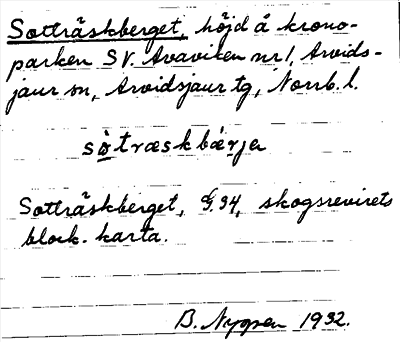 Sotträskberget, höjd å krono-
parken SV. Avaviken nr 1, Arvids-
jaur sn, Arvidsjaur tg, Norrb. l.
sòtræskbærja
Sotträskberget, 34, skogsrevirets
block. karta.
B. Nygren 1932.